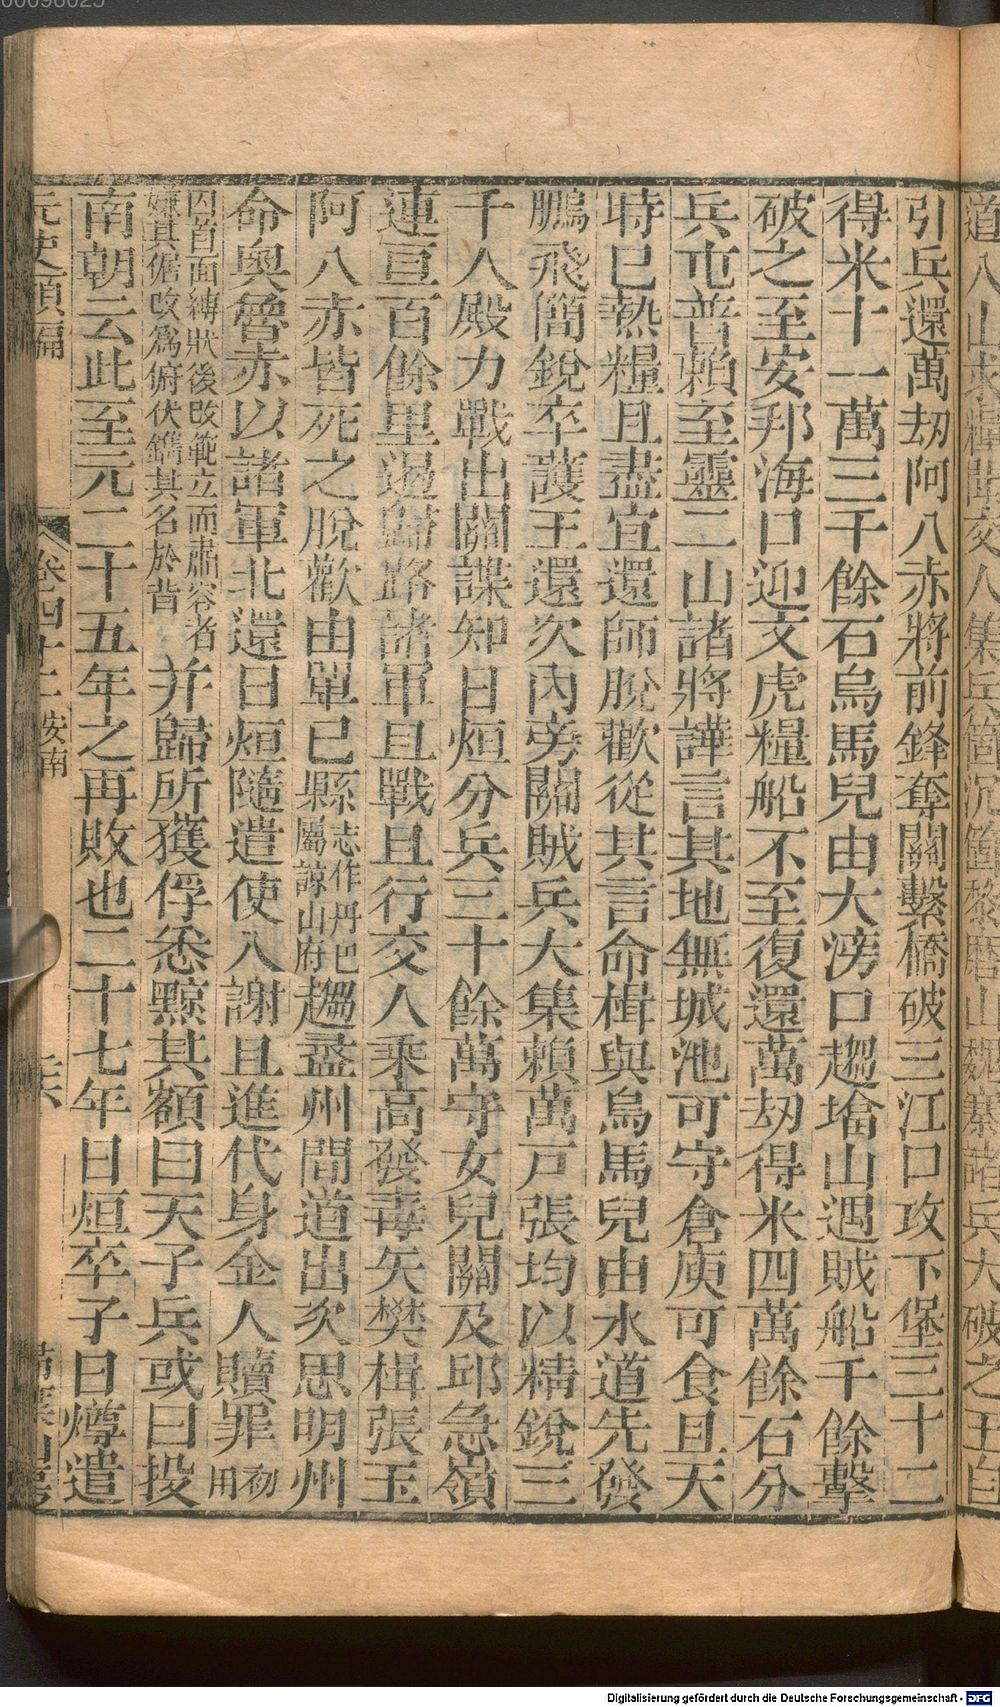 引兵還萬刼阿八赤將前鋒奪關繫橋破三江口攻下堡三十二
得米十一萬三千餘石烏馬兒由大滂口趨塔山遇賊船千餘擊
破之至安邦海口迎文虎糧船不至復還萬刼得米四萬餘石分
兵屯普賴至靈二山諸將譁言其地無城池可守倉庾可食且天
時已熱糧且盡宜還師脫歡從其言命楫與烏馬兒由水道先發
鵬飛簡銳卒護王還次內旁關賊兵大集賴萬戸張均以精銳三
千人殿力戰出關諜知日烜分兵三十餘萬守女兒關及邱急嶺
連亘百餘里遏歸路諸軍且戰且行交人乘高發毒矢樊楫張玉
阿八赤皆死之脫歡由單已縣志作丹巴屬諒山府趨盝州間道出次思明州
命奧魯赤以諸軍北還日烜隨遣使入謝且進代身金人贖罪初用
囚首面縛狀後改範立而肅容者嫌其倨改爲俯伏鐫其名於背并歸所獲俘悉黥其額曰天子兵或曰投
南朝云此至元二十五年之再敗也二十七年日烜卒子日燇遣
元史類編 卷四十二 安南
00098025
Digitalisierung gefördert durch die Deutsche Forschungsgemeinschaft - DFG